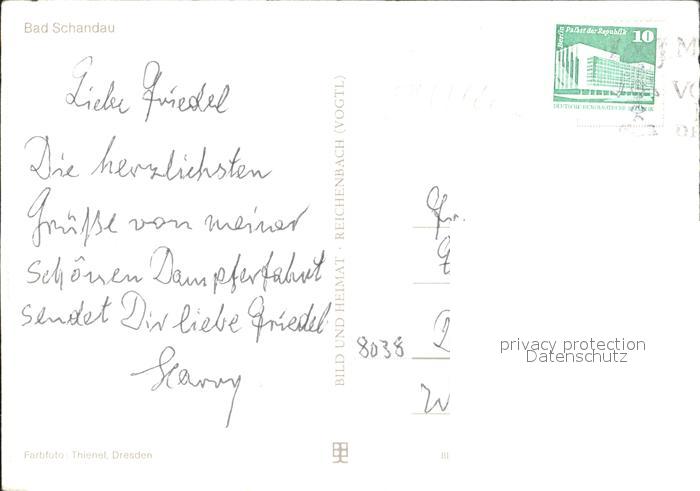 Bad Schandau
Liebe Friedel
Die herzlichsten
Grüße von meiner
schönen Dampferfahrt
sendet Dir liebe Friedel
Harry
Farbfoto: Thienel, Dresden
BILD UND HEIMAT · REICHENBACH (VOGTL)
Berlin Palast der Republik
10
DEUTSCHE DEMOKRATISCHE REPUBLIK
Fr.
8038
privacy protection
Datenschutz